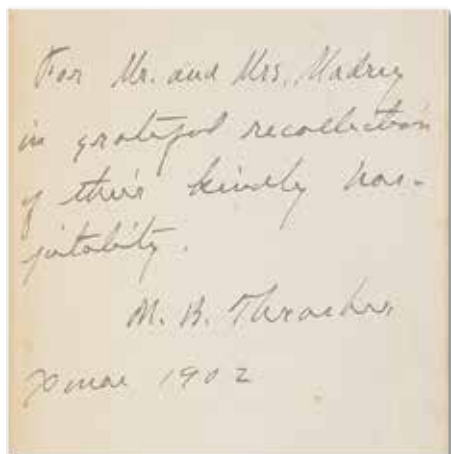 For Mr. and Mrs.
in grateful recollection
of their kindly hos-
pitality.
M. B. Thrasher,
Xmas 1902